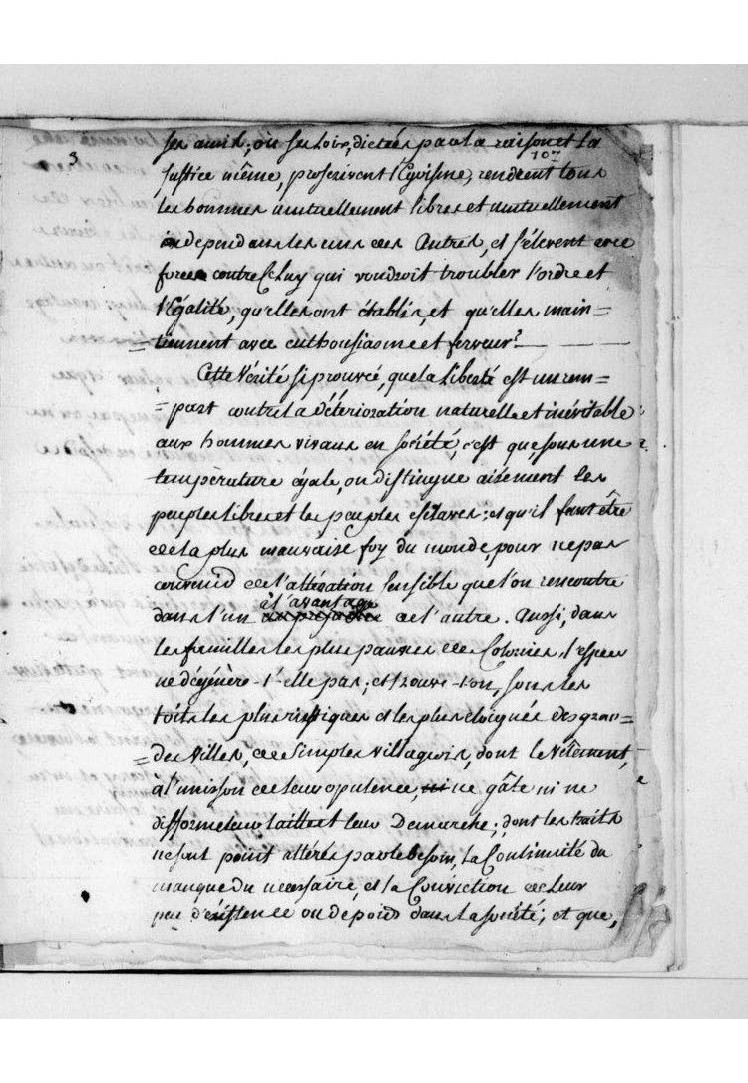 3
ses amis; où ses Loix, dictées par la raison et la
10n
justice même, proscrivent l'Egoïsme, rendent tous
les hommes mutuellement libres et mutuellement
independans les uns des Autres, et s'élevent avec
force contre Celuy qui voudroit troubler l'ordre et
l'Egalité, qu'elles ont établis, et qu'elles main=
=tiennent avec enthousiasme et ferveur?
Cette Vérité si prouvée, que la Liberté est un rem=
=part contre la Déterioration naturelle et inévitable
aux hommes vivans en Société, c'est que, sous une
température égale, on distingue aisément les
peuples libres et les peuples esclaves: et qu'il faut être
de la plus mauvaise foy du monde, pour ne pas
convenir de l'altération sensible que l'on rencontre
à l'avantage
dans l'un de l'autre. Aussi, dans
les familles les plus pauvres des Colonies, l'espece
ne dégénère-t-elle pas; et trouve-t-on, sous les
toits les plus rustiques et les plus éloignés des gran=
=des Villes, de Simples Villageois, dont le Vêtement,
à l'unisson de leur opulence, ne gâte ni ne
difforme leur taille et leur Demarche; dont les traits
ne sont point altérés par le besoin, La Continuité du
manque du necessaire, et la Conviction de leur
peu d'éxistence ou de poids dans la Société; et que,